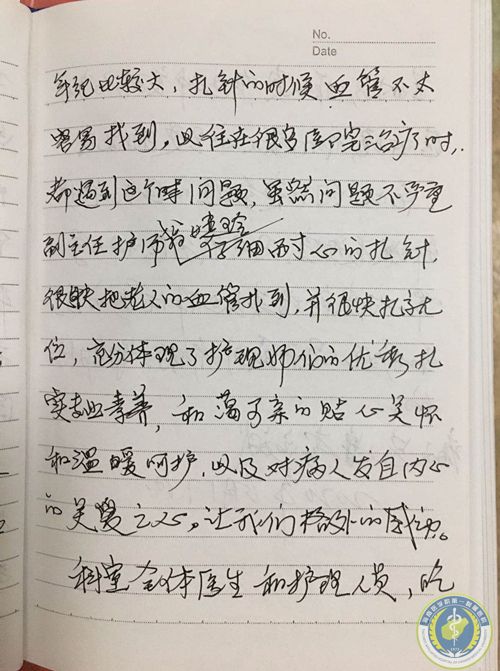 No.
Date
年纪比较大,扎针的时候血管不太
容易找到,以往在很多医院治疗时,
都遇到这个问题,虽然问题不严重
副主任护师翁 仔细耐心的扎针,
很快把老人的血管找到,并很快扎针就
位,充分体现了护理师们的优秀扎
实专业素养,和 亲的贴心关怀
和温暖呵护,以及对病人发自内心
的关爱之心,让我们格外的感动。
科室全体医生和护理人员,吃